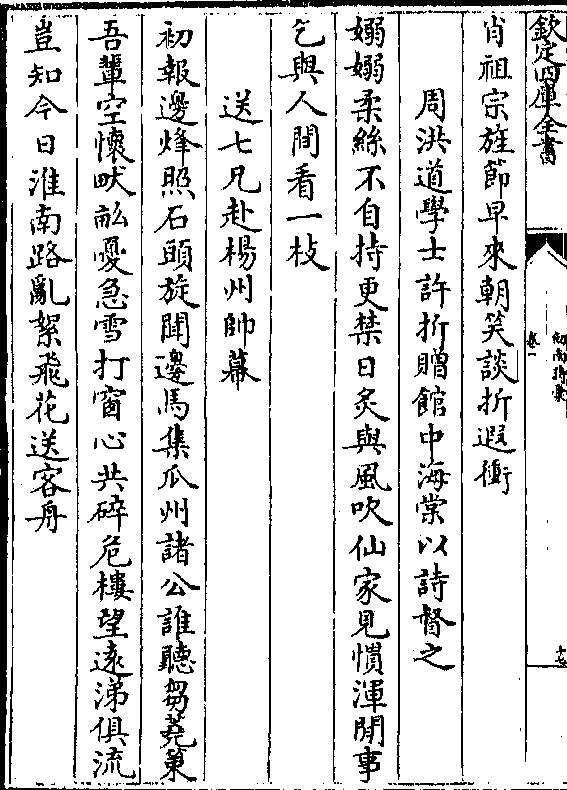 欽定四庫全書
劍南詩稾
卷一
十五
肖祖宗旌節早來朝笑談折遐衝
周洪道學士許折贈館中海棠以詩督之
嫋嫋柔絲不自持更禁日炙與風吹仙家見慣渾閒事
乞與人間看一枝
送七兄赴楊州帥幕
初報邊烽照石頭旋聞邊馬集瓜州諸公誰聽芻蕘策
吾輩空懷畎畝憂急雪打窗心共碎危樓望遠涕俱流
豈知今日淮南路亂絮飛花送客舟